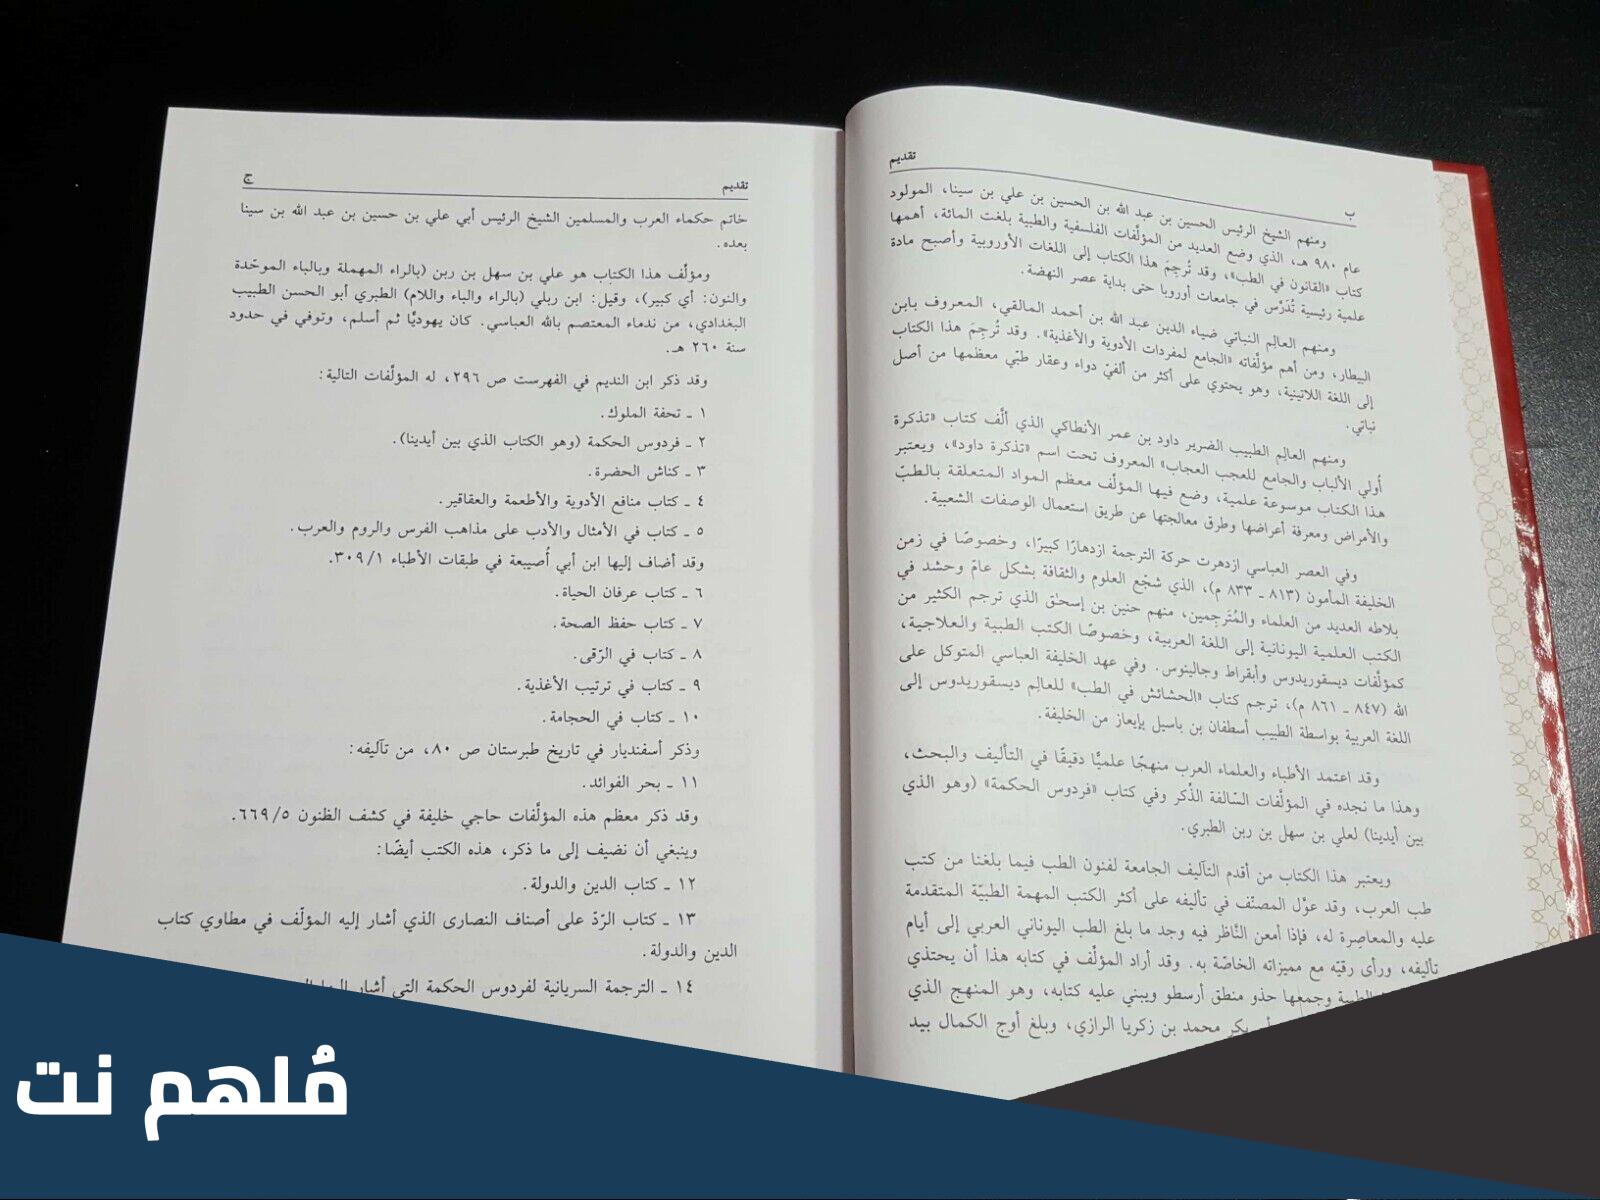 تقديم
ب
ومنهم الشيخ الرئيس الحسين بن عبد الله بن الحسين بن علي بن سينا، المولود
عام ٩٨٠ هـ، الذي وضع العديد من المؤلّفات الفلسفية والطبية بلغت المائة، أهمها
كتاب «القانون في الطب»، وقد تُرجِمَ هذا الكتاب إلى اللغات الأوروبية وأصبح مادة
علمية رئيسية تُدَرَّس في جامعات أوروبا حتى بداية عصر النهضة.
ومنهم العالِم النباتي ضياء الدين عبد الله بن أحمد المالقي، المعروف بابن
البيطار، ومن أهم مؤلّفاته «الجامع لمفردات الأدوية والأغذية». وقد تُرجِمَ هذا الكتاب
إلى اللغة اللاتينية، وهو يحتوي على أكثر من ألفيّ دواء وعقار طبّي معظمها من أصل
نباتي.
ومنهم العالِم الطبيب الضرير داود بن عمر الأنطاكي الذي ألَّف كتاب «تذكرة
أولي الألباب والجامع للعجب العجاب» المعروف تحت اسم «تذكرة داود»، ويعتبر
هذا الكتاب موسوعة علمية، وضع فيها المؤلّف معظم المواد المتعلقة بالطبّ
والأمراض ومعرفة أعراضها وطرق معالجتها عن طريق استعمال الوصفات الشعبية.
وفي العصر العباسي ازدهرت حركة الترجمة ازدهارًا كبيرًا، وخصوصًا في زمن
الخليفة المأمون (٨١٣ ـ ٨٣٣ م)، الذي شجّع العلوم والثقافة بشكل عامّ وحشد في
بلاطه العديد من العلماء والمُتَرجِمين، منهم حنين بن إسحٰق الذي ترجم الكثير من
الكتب العلمية اليونانية إلى اللغة العربية، وخصوصًا الكتب الطبية والعلاجية،
كمؤلّفات ديسقوريدوس وأبقراط وجالينوس. وفي عهد الخليفة العباسي المتوكل على
الله (٨٤٧ ـ ٨٦١ م)، ترجم كتاب «الحشائش في الطب» للعالِم ديسقوريدوس إلى
اللغة العربية بواسطة الطبيب أسطفان بن باسيل بإيعاز من الخليفة.
وقد اعتمد الأطباء والعلماء العرب منهجًا علميًّا دقيقًا في التأليف والبحث،
وهذا ما نجده في المؤلّفات السّالفة الذّكر وفي كتاب «فردوس الحكمة» (وهو الذي
بين أيدينا) لعلي بن سهل بن ربن الطبري.
ويعتبر هذا الكتاب من أقدم التآليف الجامعة لفنون الطب فيما بلغنا من كتب
طب العرب، وقد عوّل المصنّف في تأليفه على أكثر الكتب المهمة الطبيّة المتقدمة
عليه والمعاصِرة له، فإذا أمعن النّاظر فيه وجد ما بلغ الطب اليوناني العربي إلى أيام
تأليفه، ورأى رقيّه مع مميزاته الخاصّة به. وقد أراد المؤلّف في كتابه هذا أن يحتذي
الطبية وجمعها حذو منطق أرسطو ويبني عليه كتابه، وهو المنهج الذي
بكر محمد بن زكريا الرازي، وبلغ أوج الكمال بيد
تقديم
ج
خاتم حكماء العرب والمسلمين الشيخ الرئيس أبي علي بن حسين بن عبد الله بن سينا
بعده.
ومؤلّف هذا الكتاب هو علي بن سهل بن ربن (بالراء المهملة وبالباء الموحّدة
والنون: أي كبير)، وقيل: ابن ربلي (بالراء والباء واللام) الطبري أبو الحسن الطبيب
البغدادي، من ندماء المعتصم بالله العباسي. كان يهوديًّا ثم أسلم، وتوفي في حدود
سنة ٢٦٠ هـ.
وقد ذكر ابن النديم في الفهرست ص ٢٩٦، له المؤلّفات التالية:
١ ـ تحفة الملوك.
٢ ـ فردوس الحكمة (وهو الكتاب الذي بين أيدينا).
٣ ـ كناش الحضرة.
٤ ـ كتاب منافع الأدوية والأطعمة والعقاقير.
٥ ـ كتاب في الأمثال والأدب على مذاهب الفرس والروم والعرب.
وقد أضاف إليها ابن أبي أُصيبعة في طبقات الأطباء ٣٠٩/١.
٦ ـ كتاب عرفان الحياة.
٧ ـ كتاب حفظ الصحة.
٨ ـ كتاب في الرّقى.
٩ ـ كتاب في ترتيب الأغذية.
١٠ ـ كتاب في الحجامة.
وذكر أسفنديار في تاريخ طبرستان ص ٨٠، من تآليفه:
١١ ـ بحر الفوائد.
وقد ذكر معظم هذه المؤلّفات حاجي خليفة في كشف الظنون ٦٦٩/٥.
وينبغي أن نضيف إلى ما ذكر، هذه الكتب أيضًا:
١٢ ـ كتاب الدين والدولة.
١٣ ـ كتاب الردّ على أصناف النصارى الذي أشار إليه المؤلّف في مطاوي كتاب
الدين والدولة.
١٤ ـ الترجمة السريانية لفردوس الحكمة التي أشار
مُلهم نت